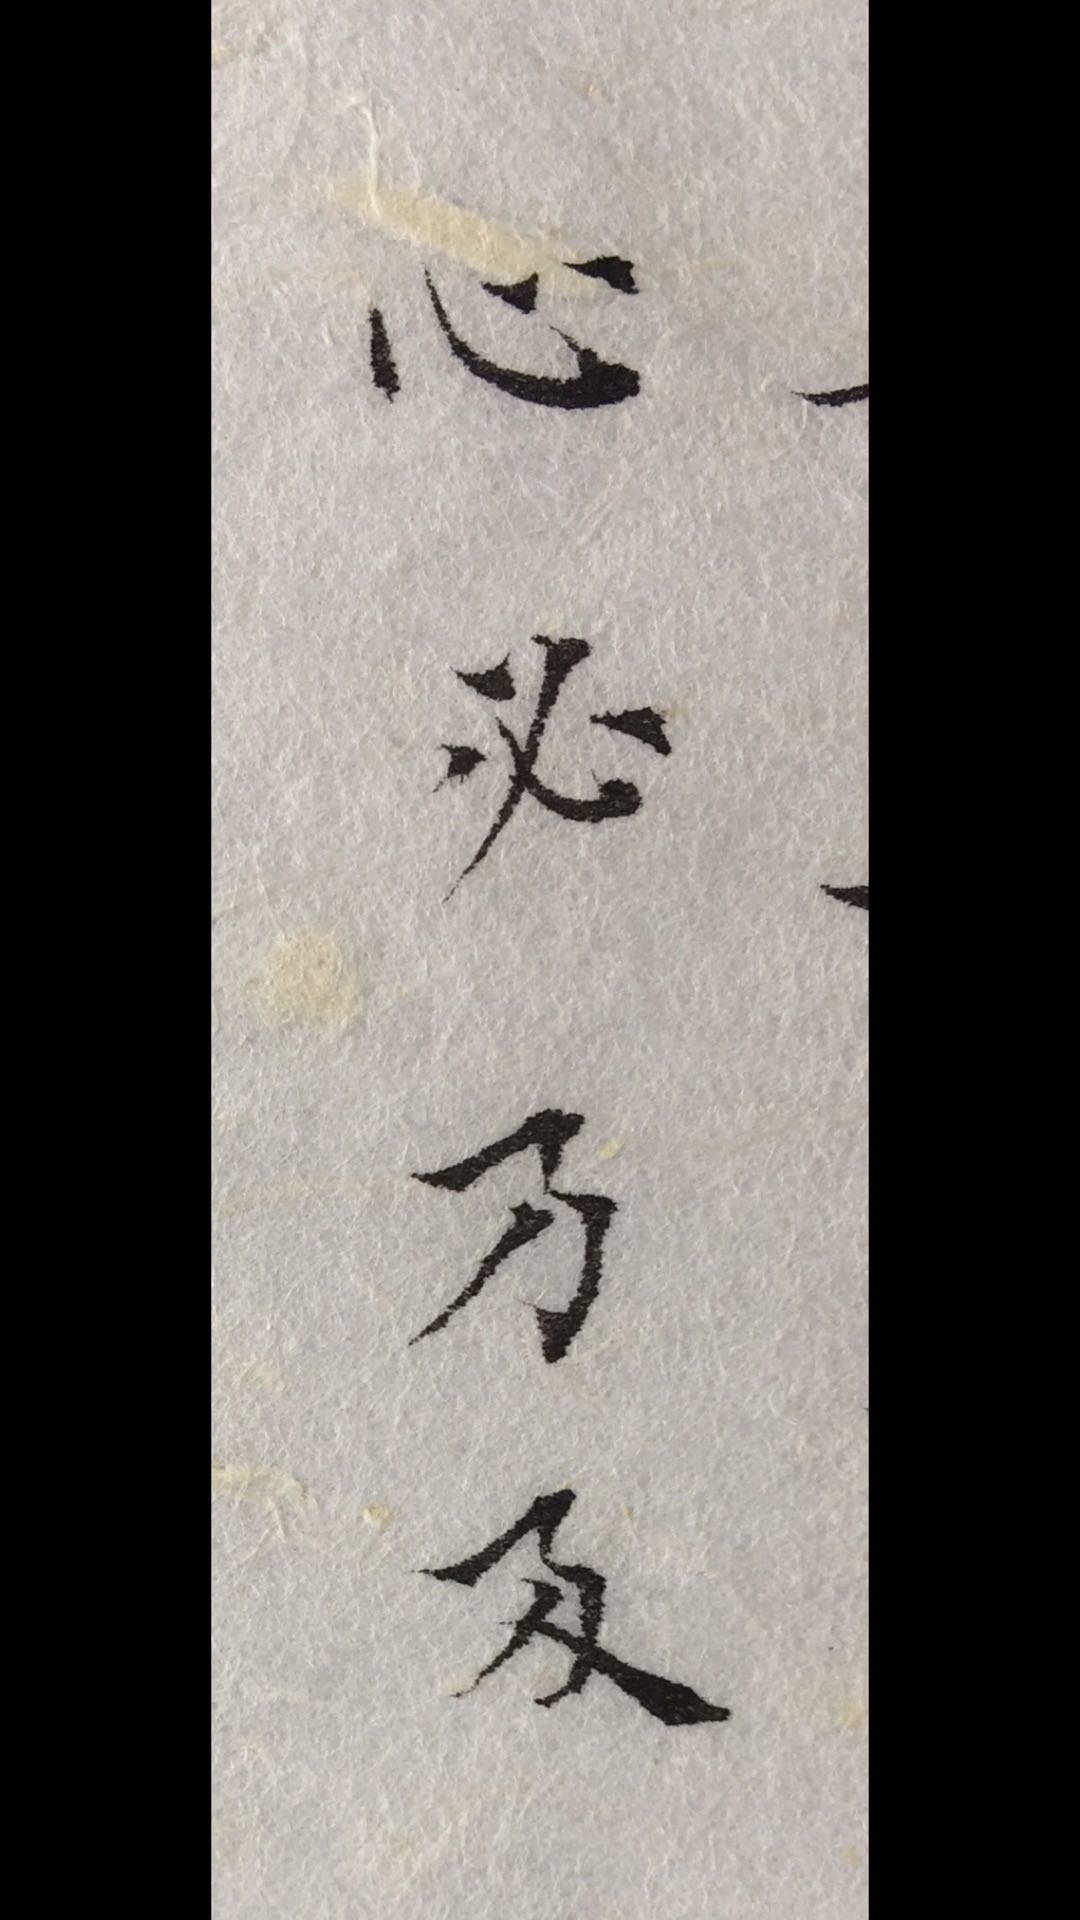 心必乃及